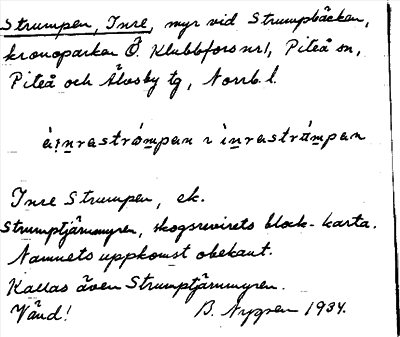 Strumpen, Inre, myr vid Strumpbäcken,
kronoparken Ö. Klubbfors nr 1, Piteå sn,
Piteå och Älvsby tg, Norrb. l.
Inre Strumpen, ek.
Strumptjärnmyren, skogsrevirets block-karta.
Namnets uppkomst obekant.
Kallas även Strumptjärnmyren.
Vänd! B. Nygren 1934.